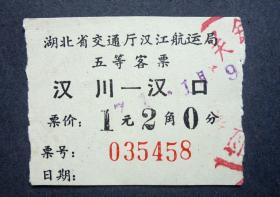 湖北省交通厅汉江航运局
五等客票
汉川—汉口
票价:1元2角0分
票号:035458
日期: